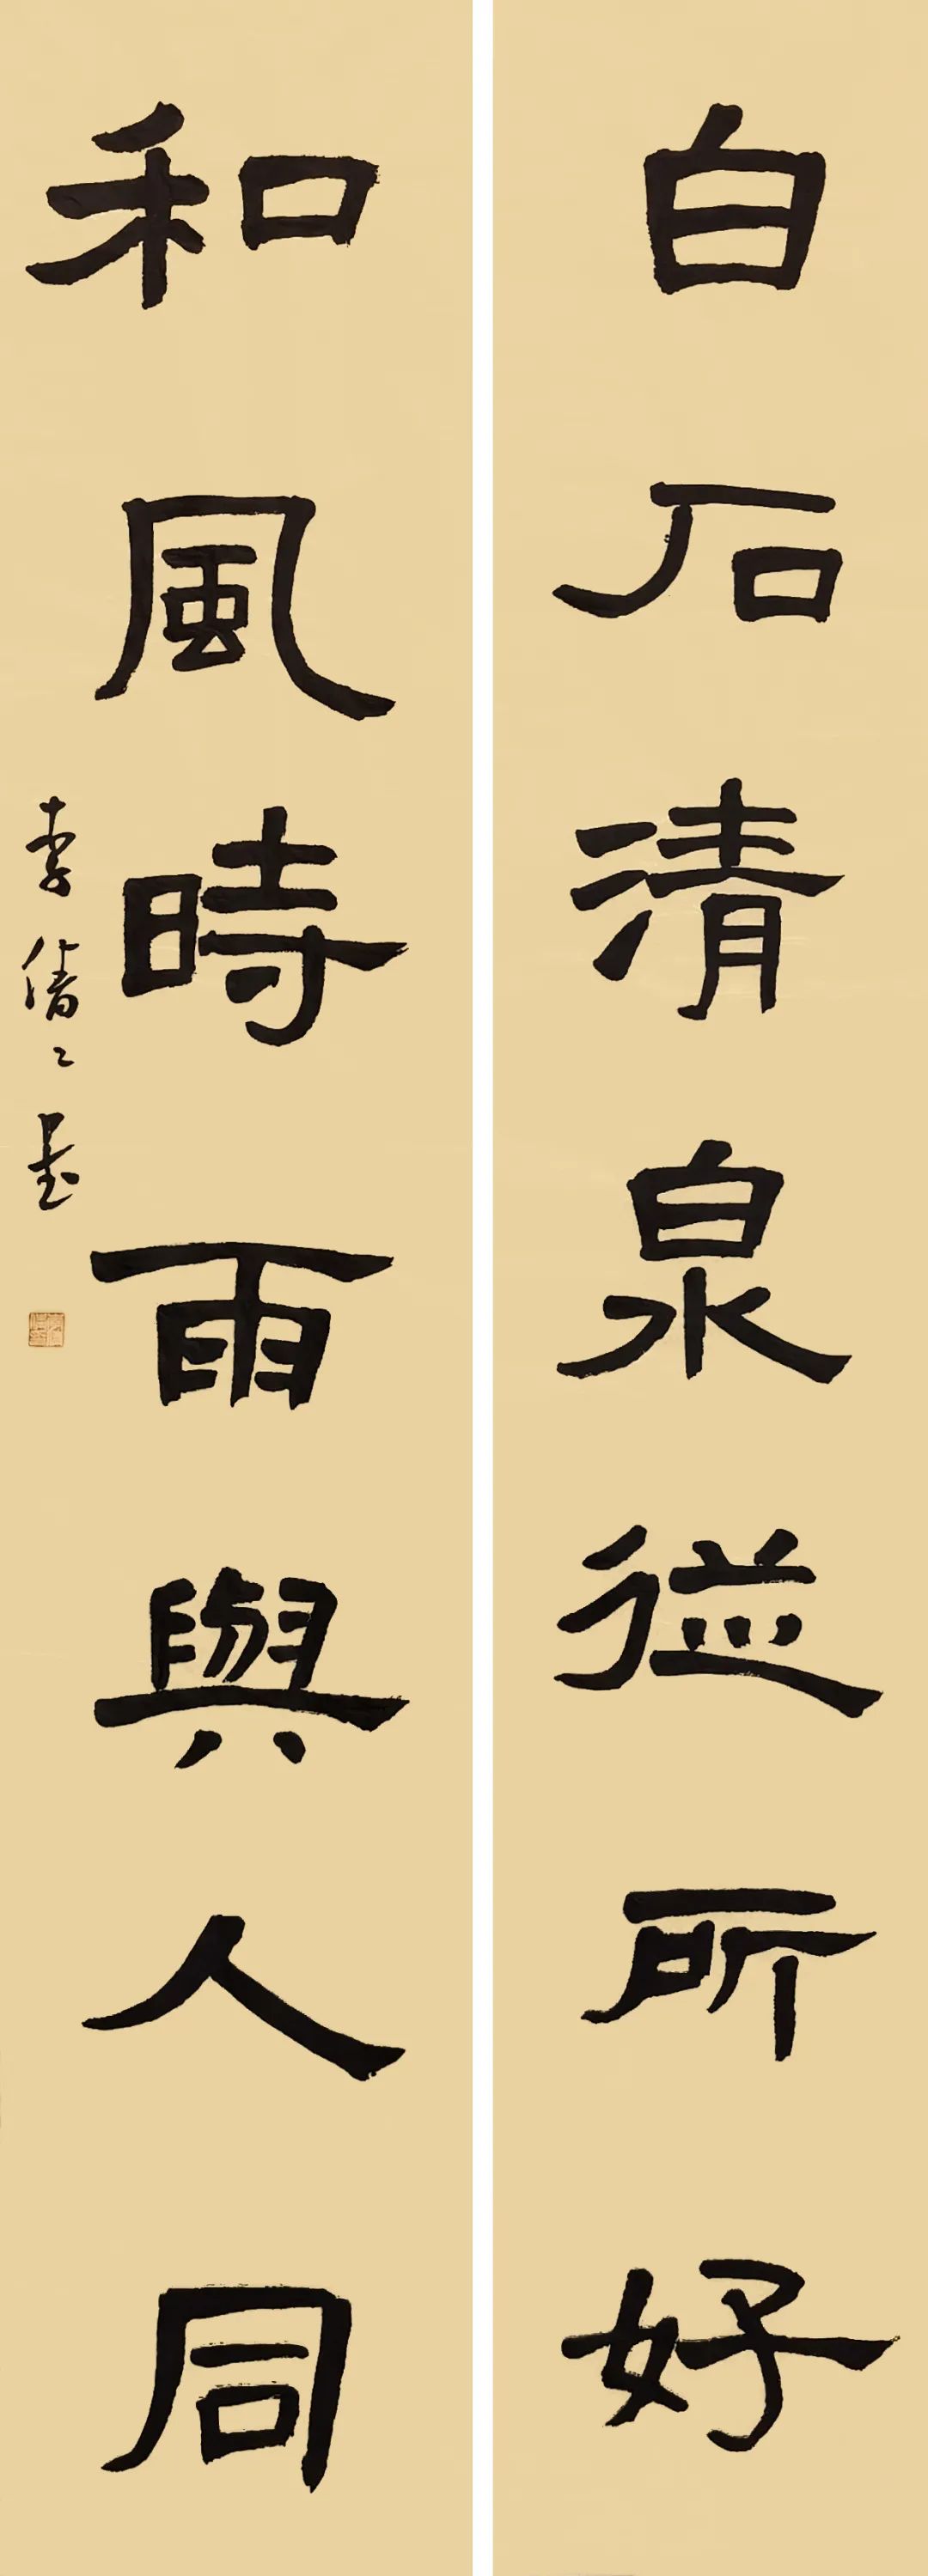 白石清泉從所好
和風時雨與人同
李倩之書